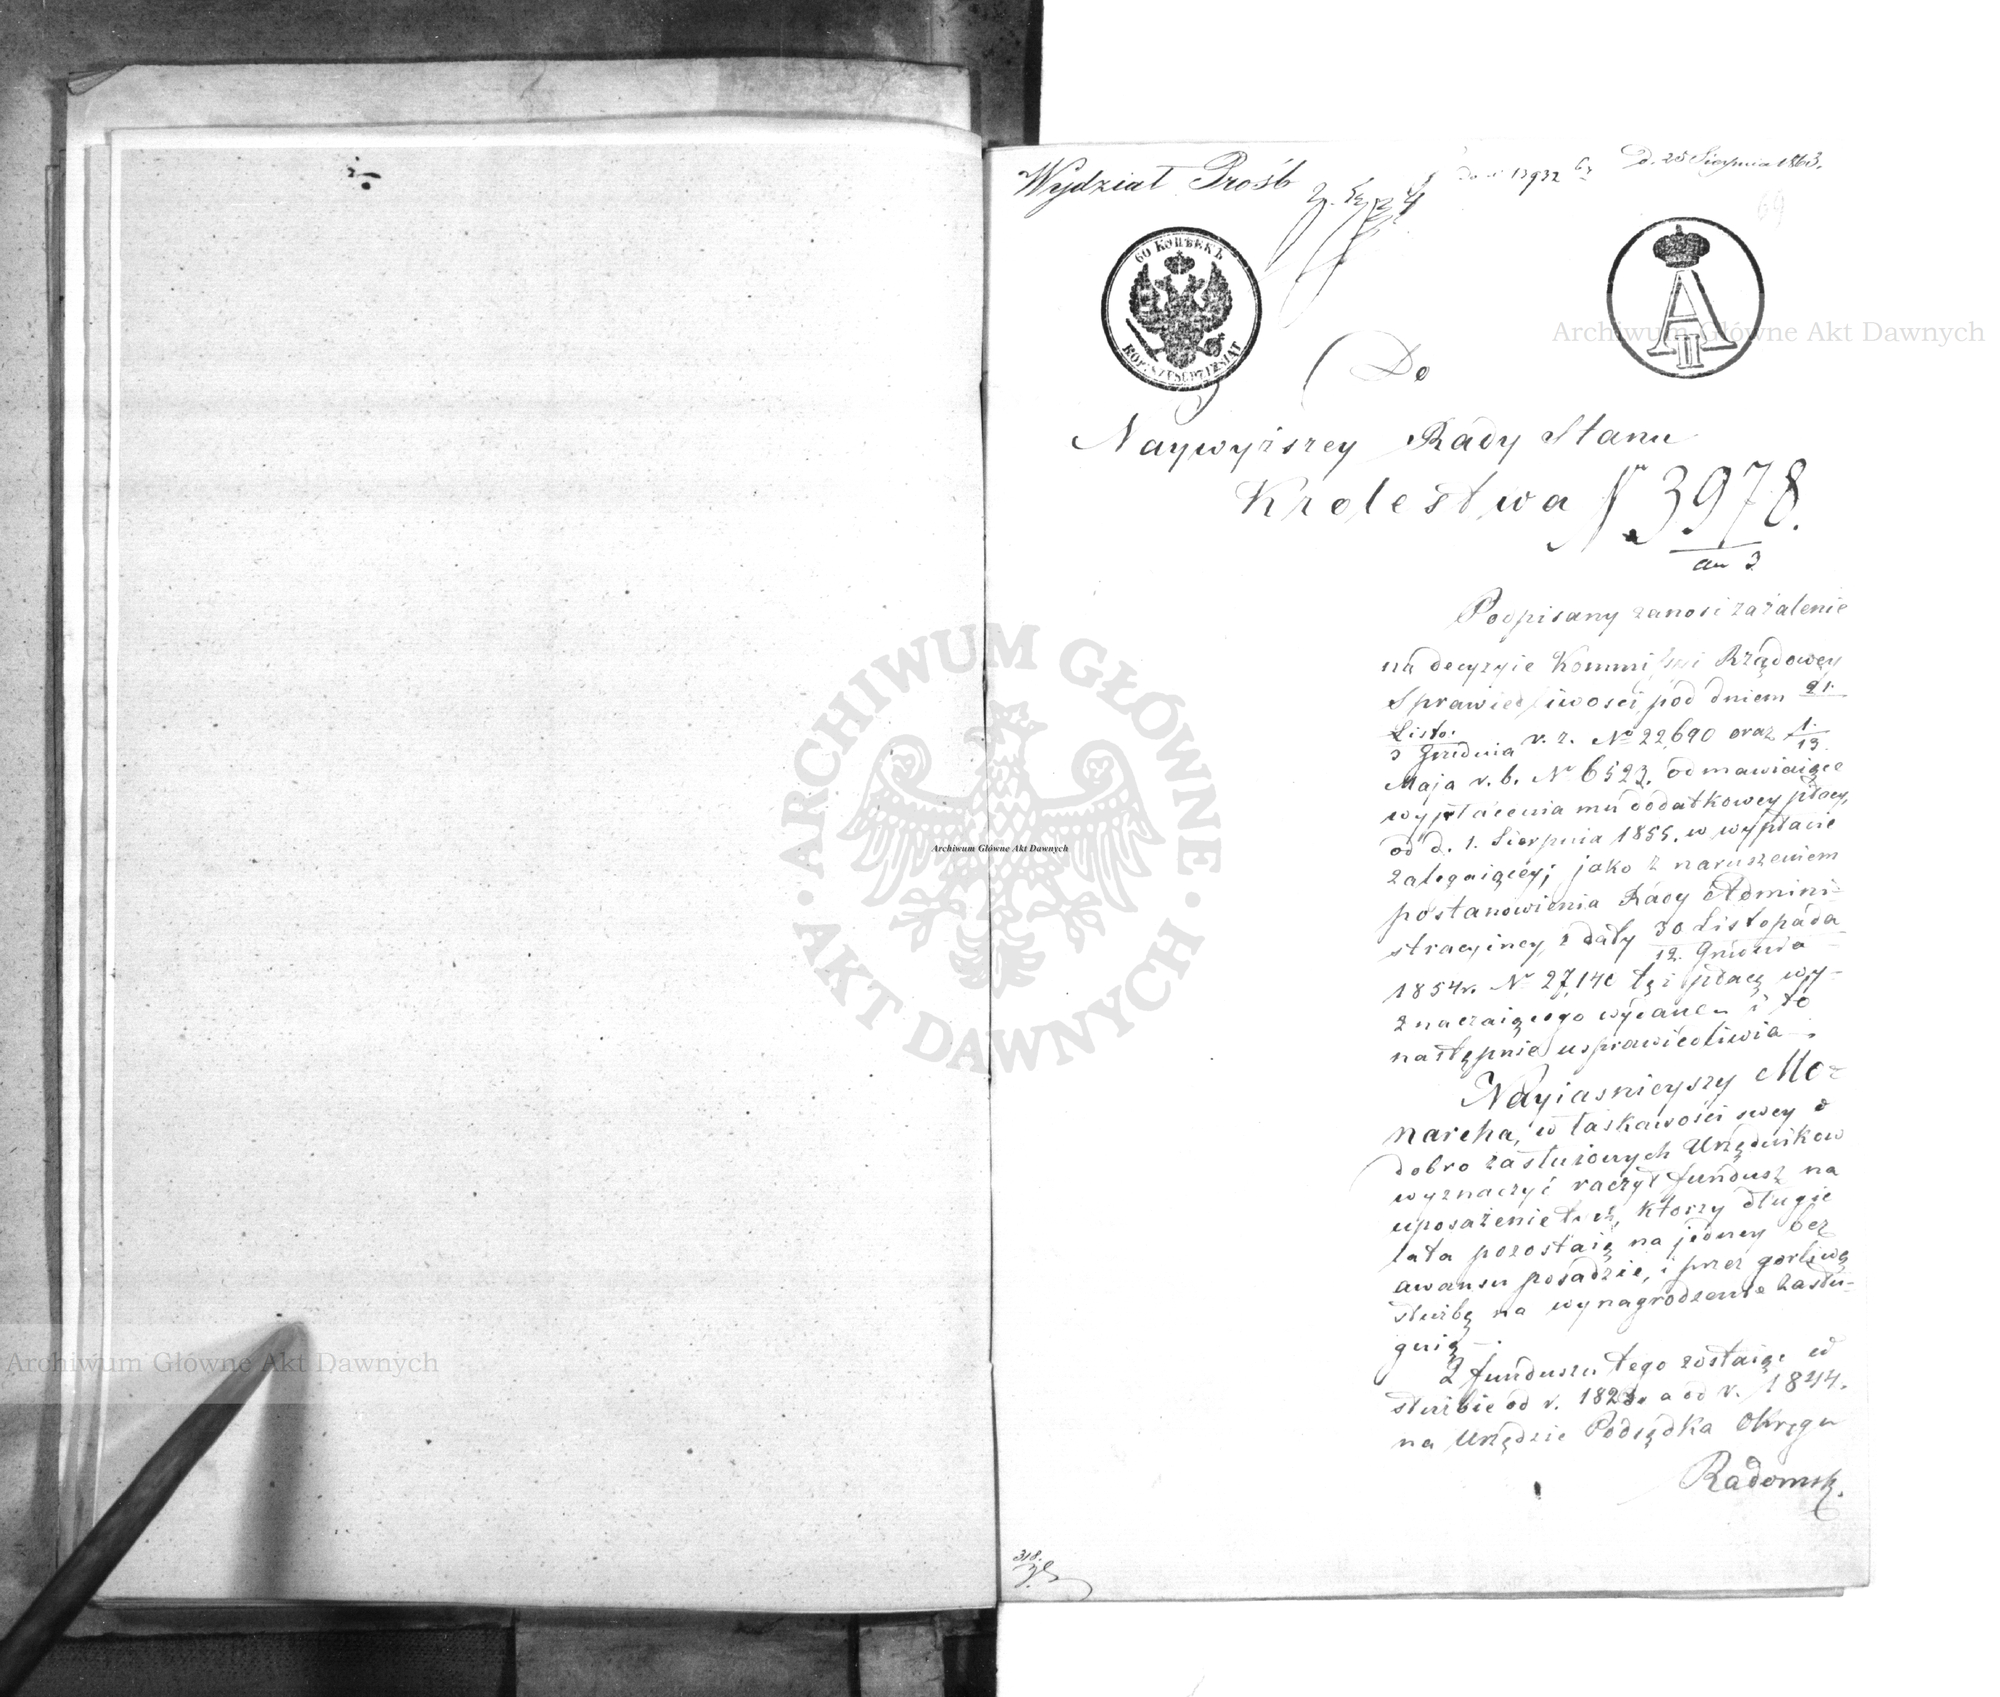 Wydział Prośb
13932
D. 25 Sierpnia 1863.
69
60 КОПѢЕКЪ
KOP. SZEŚĆDZIESIĄT
A II
Do
Naywyższey Rady Stanu
Królestwa N 3978.
Podpisany zanosi zażalenie
na decyzyie Kommissyi Rządowey
Sprawiedliwości, pod dniem 21.
Listo.
3 Grudnia v. r. No 22,690 oraz 1/13.
Maja r. b. No 6523, odmawiaiące
wypłacenia mu dodatkowey płacy,
od d. 1. Sierpnia 1855. w wypłacie
zalegaiącey; jako z naruszeniem
postanowienia Rady Admini-
stracyiney, z daty 30 Listopada
12. Grudnia
1854 r. No tęż płacę wy-
znaczaiącego wydane i to
następnie usprawiedliwia.
Nayiaśnieyszy Mo-
narcha, w łaskawości swey
dobro zasłużonych Urzędników
wyznaczyć raczył fundusz na
uposażenie tych, którzy długie
lata pozostaią na jedney bez
awansu posadzie, i przez gorliwą
służbę na wynagrodzenie zasłu-
guią.
Z funduszu tego zostaiąc w
służbie od r. a od r. 1844.
na Urzędzie Podsędka Okręgu
Radomsk.
318.
Archiwum Główne Akt Dawnych
Archiwum Główne Akt Dawnych
Archiwum Główne Akt Dawnych
ARCHIWUM GŁÓWNE
AKT DAWNYCH